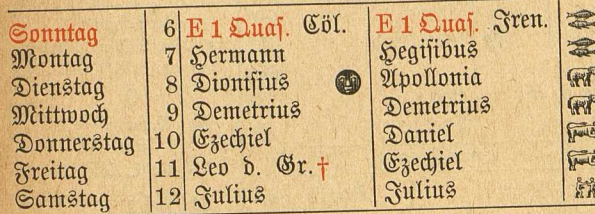 Sonntag 6 E 1 Quas. Cöl. E 1 Quas. Iren.
Montag 7 Hermann Hegisibus
Dienstag 8 Dionisius Apollonia
Mittwoch 9 Demetrius Demetrius
Donnerstag 10 Ezechiel Daniel
Freitag 11 Leo d. Gr. † Ezechiel
Samstag 12 Julius Julius